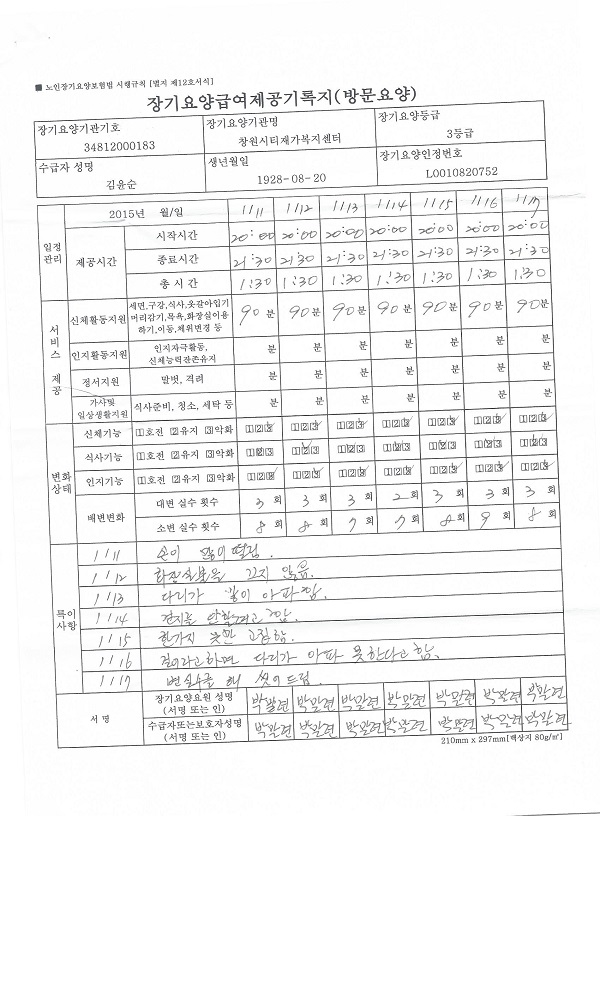 ■ 노인장기요양보험법 시행규칙 [별지 제12호서식]
장기요양급여제공기록지(방문요양)
장기요양기관기호 장기요양기관명 장기요양등급
34812000183 창원시티재가복지센터 3등급
수급자 성명 생년월일 장기요양인정번호
김윤순 1928-08-20 L0010820752
일정관리 2015년 월/일 11/11 11/12 11/13 11/14 11/15 11/16 11/17
제공시간 시작시간 20:00 20:00 20:00 20:00 20:00 20:00 20:00
종료시간 21:30 21:30 21:30 21:30 21:30 21:30 21:30
총 시 간 1:30 1:30 1:30 1:30 1:30 1:30 1:30
서비스 제공
신체활동지원 세면,구강,식사,옷갈아입기
머리감기,목욕,화장실이용
하기,이동,체위변경 등
90분 90분 90분 90분 90분 90분 90분
인지활동지원 인지자극활동,
신체능력잔존유지
분 분 분 분 분 분 분
정서지원 말벗, 격려 분 분 분 분 분 분 분
가사및
일상생활지원 식사준비, 청소, 세탁 등 분 분 분 분 분 분 분
변화상태
신체기능 1호전 2유지 3악화 123 123 123 123 123 123 123
식사기능 1호전 2유지 3악화 123 123 123 123 123 123 123
인지기능 1호전 2유지 3악화 123 123 123 123 123 123 123
배변변화 대변 실수 횟수 3회 3회 3회 2회 3회 3회 3회
소변 실수 횟수 8회 8회 7회 7회 8회 9회 8회
특이사항
11/11 손이 많이 떨림.
11/12 끄지 않음.
11/13 다리가 많이 아파함.
11/14
11/15 한가지 옷만 고집함.
11/16 다리가 아파 못한다고 함.
11/17 변실수를 해 씻어드림.
서 명 장기요양요원 성명
(서명 또는 인)
박말련 박말련 박말련 박말련 박말련 박말련 박말련
수급자또는보호자성명
(서명 또는 인)
박말련 박말련 박말련 박말련 박말련 박말련 박말련
210mm x 297mm[백상지 80g/㎡]